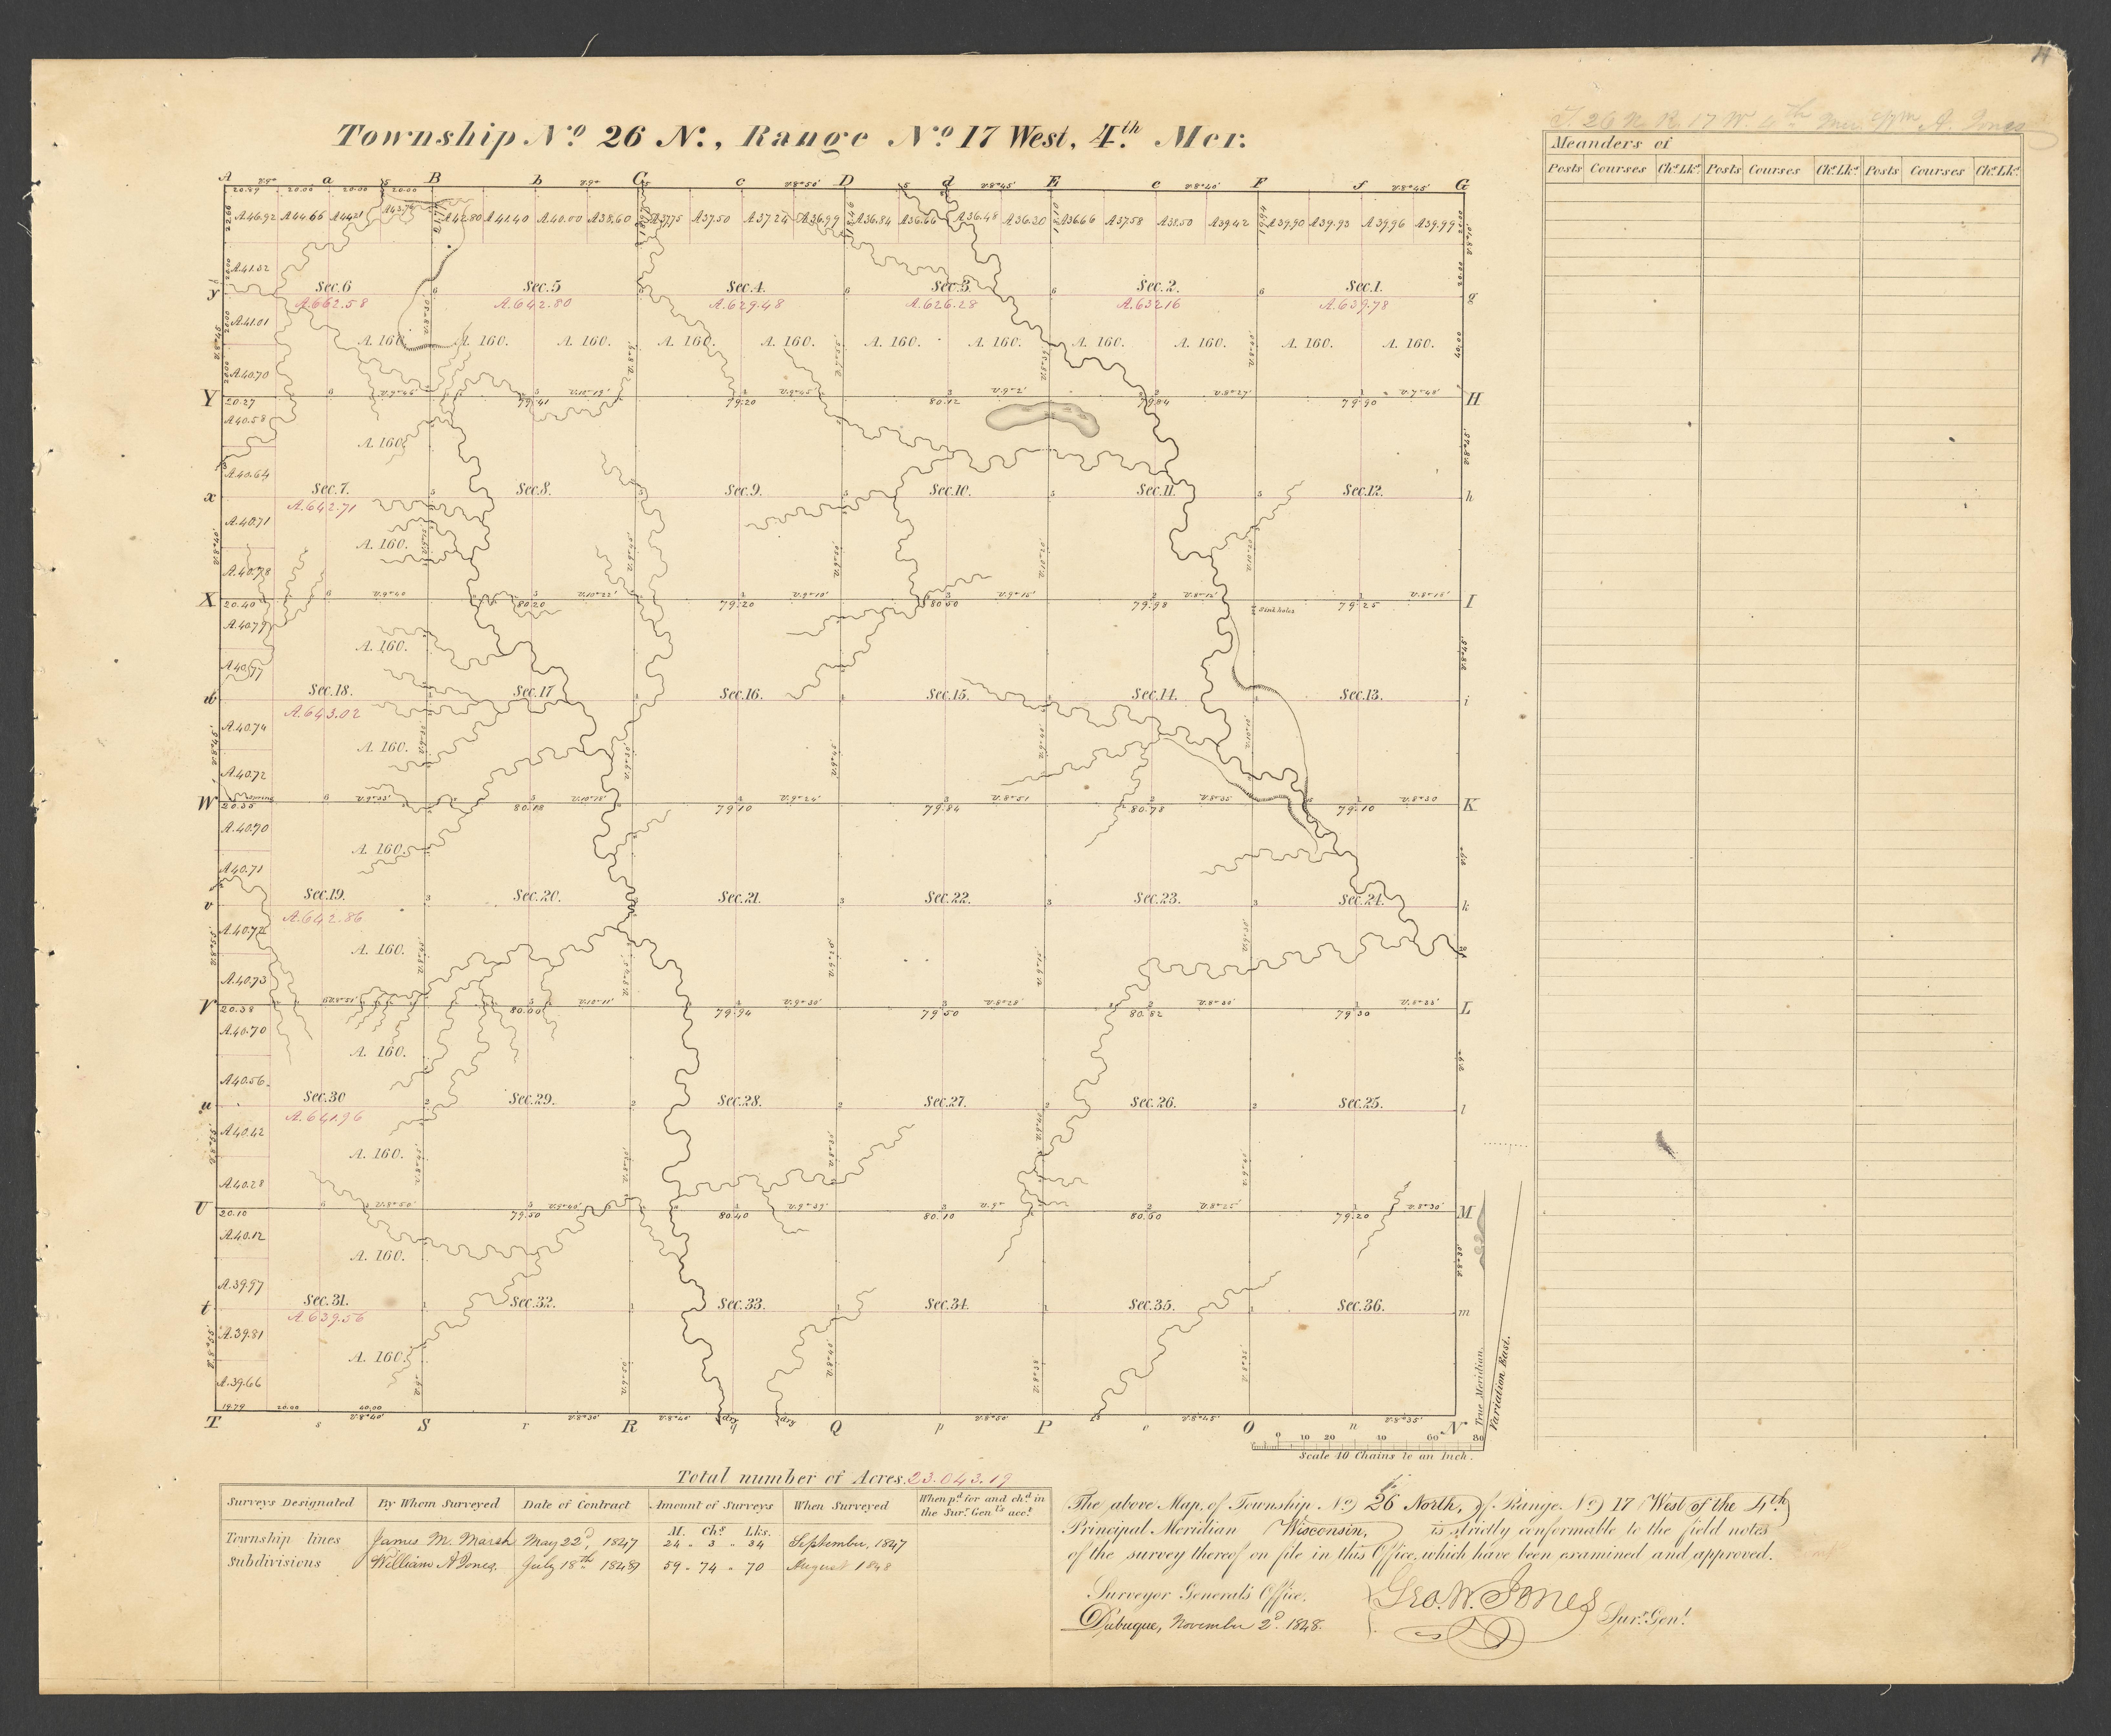 T. 26 N. R. 17 W 4th Mer. Wm A. Jones
Township No. 26 N., Range No. 17 West, 4th Mer.
Meanders of
Posts Courses Chs. Lks. Posts Courses Chs. Lks. Posts Courses Chs. Lks.
A a B b C c D d E e F f G
20.89 20.00 20.00 20.00
A.46.92 A.44.66 A.44.21 A.43.74 A.42.80 A.41.40 A.40.00 A.38.60 A.37.75 A.37.50 A.37.24 A.36.99 A.36.84 A.36.66 A.36.48 A.36.30 A.36.66 A.37.58 A.38.50 A.39.42 A.39.90 A.39.93 A.39.96 A.39.99
A.41.32
Sec.6 Sec.5 Sec.4. Sec.3. Sec.2. Sec.1.
y A.662.58 A.642.80 A.629.48 A.626.28 A.632.16 A.639.78 g
A.41.01
A. 160. A. 160. A. 160. A. 160. A. 160. A. 160. A. 160. A. 160. A. 160. A. 160. A. 160.
A.40.70
Y 20.27 79.41 79.20 80.12 79.84 79.90 H
A.40.58
A. 160.
A.40.64
x Sec.7. Sec.8. Sec.9. Sec.10. Sec.11. Sec.12. h
A.642.71
A.40.71
A. 160.
A.40.78
X 20.40 80.20 79.20 80.50 79.98 79.25 I
Sink holes
A.40.79
A. 160.
A.40.77
w Sec.18. Sec.17. Sec.16. Sec.15. Sec.14. Sec.13. i
A.643.02
A.40.74
A. 160.
A.40.72
Spring
W 20.35 80.18 79.10 79.84 80.78 79.10 K
A.40.70
A. 160.
A.40.71
v Sec.19. Sec.20. Sec.21. Sec.22. Sec.23. Sec.24. k
A.642.86
A.40.72
A. 160.
A.40.73
V 20.38 80.00 79.94 79.50 80.82 79.30 L
A.40.70
A. 160.
A.40.56.
u Sec.30 Sec.29. Sec.28. Sec.27. Sec.26. Sec.25. l
A.641.96
A.40.42
A. 160.
A.40.28
U 20.10 79.50 80.40 80.10 80.60 79.20 M
A.40.12
A. 160.
A.39.97
t Sec.31. Sec.32. Sec.33. Sec.34. Sec.35. Sec.36. m
A.639.56
A.39.81
A. 160.
A.39.66
19.79 20.00 40.00
T s S r R q Q p P o O n N
True Meridian.
Variation East.
0 10 20 40 60 80
Scale 40 Chains to an Inch.
Total number of Acres. 23.043.19
Surveys Designated By Whom Surveyed Date of Contract Amount of Surveys When Surveyed When pd. for and chd. in the Sur. Genl's acct.
M. Chs. Lks.
Township lines James M. Marsh May 22d, 1847 24 " 3 " 34 September, 1847
Subdivisions William A. Jones. July 18th 1848 59 " 74 " 70 August 1848
The above Map, of Township No. 26 North, of Range No. 17 West of the 4th
Principal Meridian Wisconsin, is strictly conformable to the field notes
of the survey thereof on file in this Office, which have been examined and approved.
Surveyor General's Office,
Dubuque, November 2d. 1848.
Geo. W. Jones
Sur. Genl.